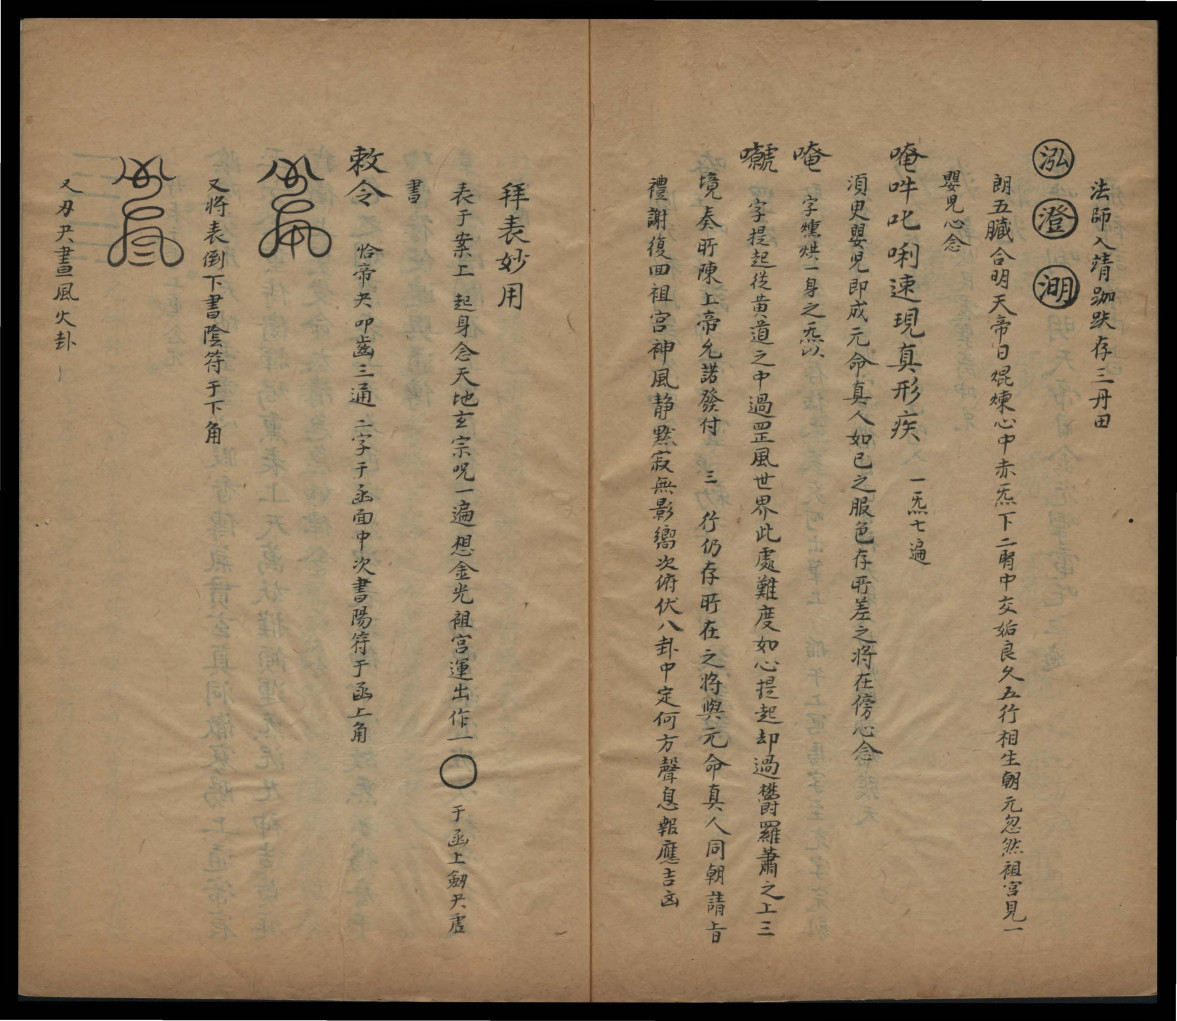 法師入靖跏趺存三丹田
泓澄湖
朗五臟合明天帝日焜煉心中赤炁下二腎中交姤良久五行相生朝元忽然祖宮見一
嬰児心念
唵吽叱唎速現真形疾 一炁七遍
須臾嬰児即成元命真人如已之服色存所差之將在傍心念
唵 字燻烘一身之炁以
字提起從黄道之中過罡風世界此處難度如心提起却過欝羅蕭之上三
境奏所陳上帝允諾發付 三 行仍存所在之將與元命真人同朝請旨
禮謝復回祖宮神風静黙寂無影嚮次俯伏八卦中定何方聲息報應吉凶
拜表妙用
表于案上 起身念天地玄宗呪一遍想金光祖宮運出作一〇 于函上劔尖虚
書
敕令 恰帝尖叩齒三通 二字于函面中次書陽符于函上角
又將表倒下書陰符于下角
又刅尖書風火卦